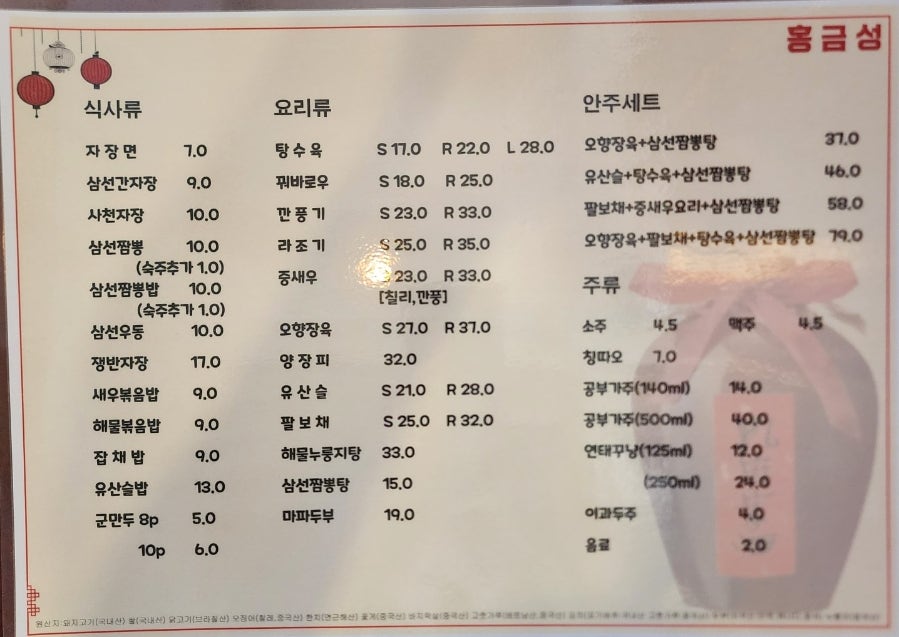 홍금성
식사류
자장면 7.0
삼선간자장 9.0
사천자장 10.0
삼선짬뽕 10.0
(숙주추가 1.0)
삼선짬뽕밥 10.0
(숙주추가 1.0)
삼선우동 10.0
쟁반자장 17.0
새우볶음밥 9.0
해물볶음밥 9.0
잡채밥 9.0
유산슬밥 13.0
군만두 8p 5.0
10p 6.0
요리류
탕수육 S 17.0 R 22.0 L 28.0
꿔바로우 S 18.0 R 25.0
깐풍기 S 23.0 R 33.0
라조기 S 25.0 R 35.0
중새우 23.0 R 33.0
[칠리,깐풍]
오향장육 S 27.0 R 37.0
양장피 32.0
유산슬 S 21.0 R 28.0
팔보채 S 25.0 R 32.0
해물누룽지탕 33.0
삼선짬뽕탕 15.0
마파두부 19.0
안주세트
오향장육+삼선짬뽕탕 37.0
유산슬+탕수육+삼선짬뽕탕 46.0
팔보채+중새우요리+삼선짬뽕탕 58.0
오향장육+팔보채+탕수육+삼선짬뽕탕 79.0
주류
소주 4.5 맥주 4.5
칭따오 7.0
공부가주(140ml) 14.0
공부가주(500ml) 40.0
연태꾸냥(125ml) 12.0
(250ml) 24.0
이과두주 4.0
음료 2.0
원산지:돼지고기(국내산) 쌀(국내산) 닭고기(브라질산) 오징어(칠레,중국산) 한치(연근해산) 꽃게(중국산) 바지락살(중국산)